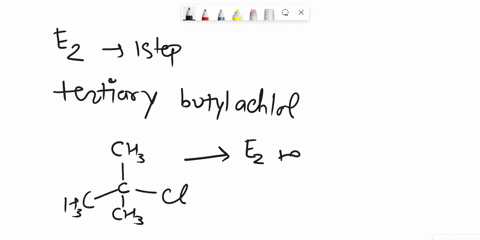 E2 → 1step
tertiary butylachlol
CH3
H3C C Cl
CH3
→ E2